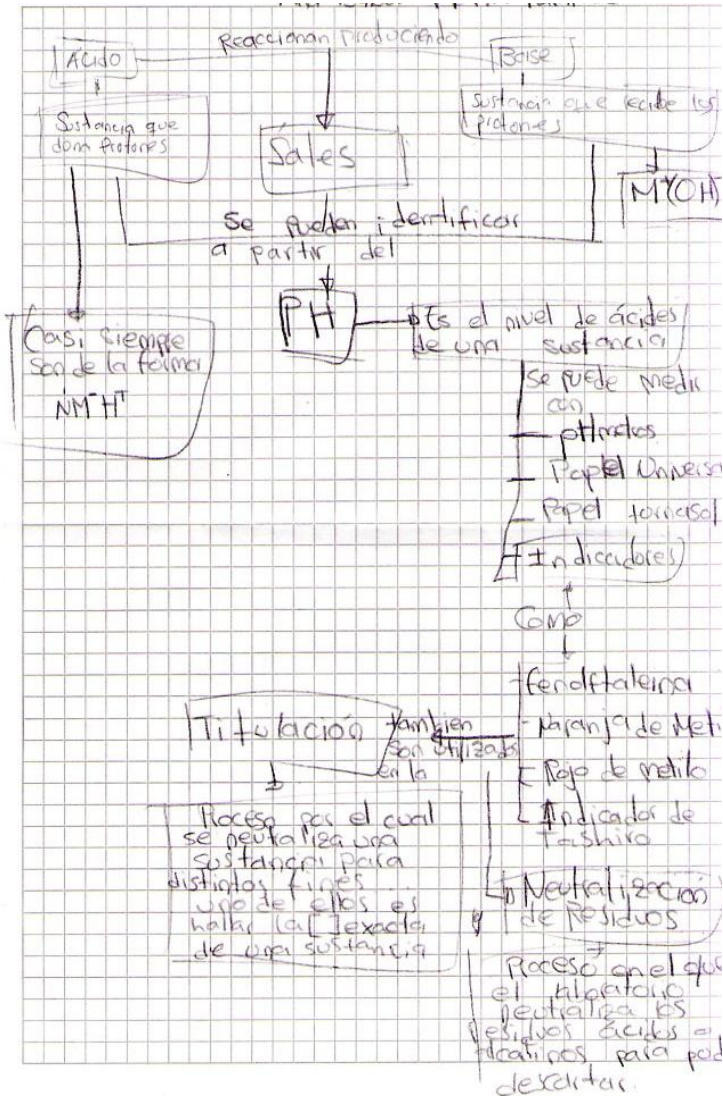 Reaccionan produciendo
Ácido
Base
Sustancia que
dona Protones
Sales
Sustancia que recibe los
protones
M⁺(OH)⁻
Se pueden identificar
a partir del
Casi siempre
son de la forma
NM⁻H⁺
PH
Es el nivel de ácides
de una sustancia
Se puede medir
con
- pHmetros
- Papel Universa
- Papel tornasol
- Indicadores
Como
- fenolftaleina
- Naranja de Meti
- Rojo de metilo
- Indicador de
Tashiro
tambien
son utilizados
en la
Titulación
Proceso por el cual
se neutraliza una
sustancia para
distintos fines
uno de ellos es
hallar la [ ] exacta
de una sustancia
Neutralización
de Residuos
Proceso en el que
el laboratorio
neutraliza los
residuos ácidos o
alcalinos para pod
descartar.